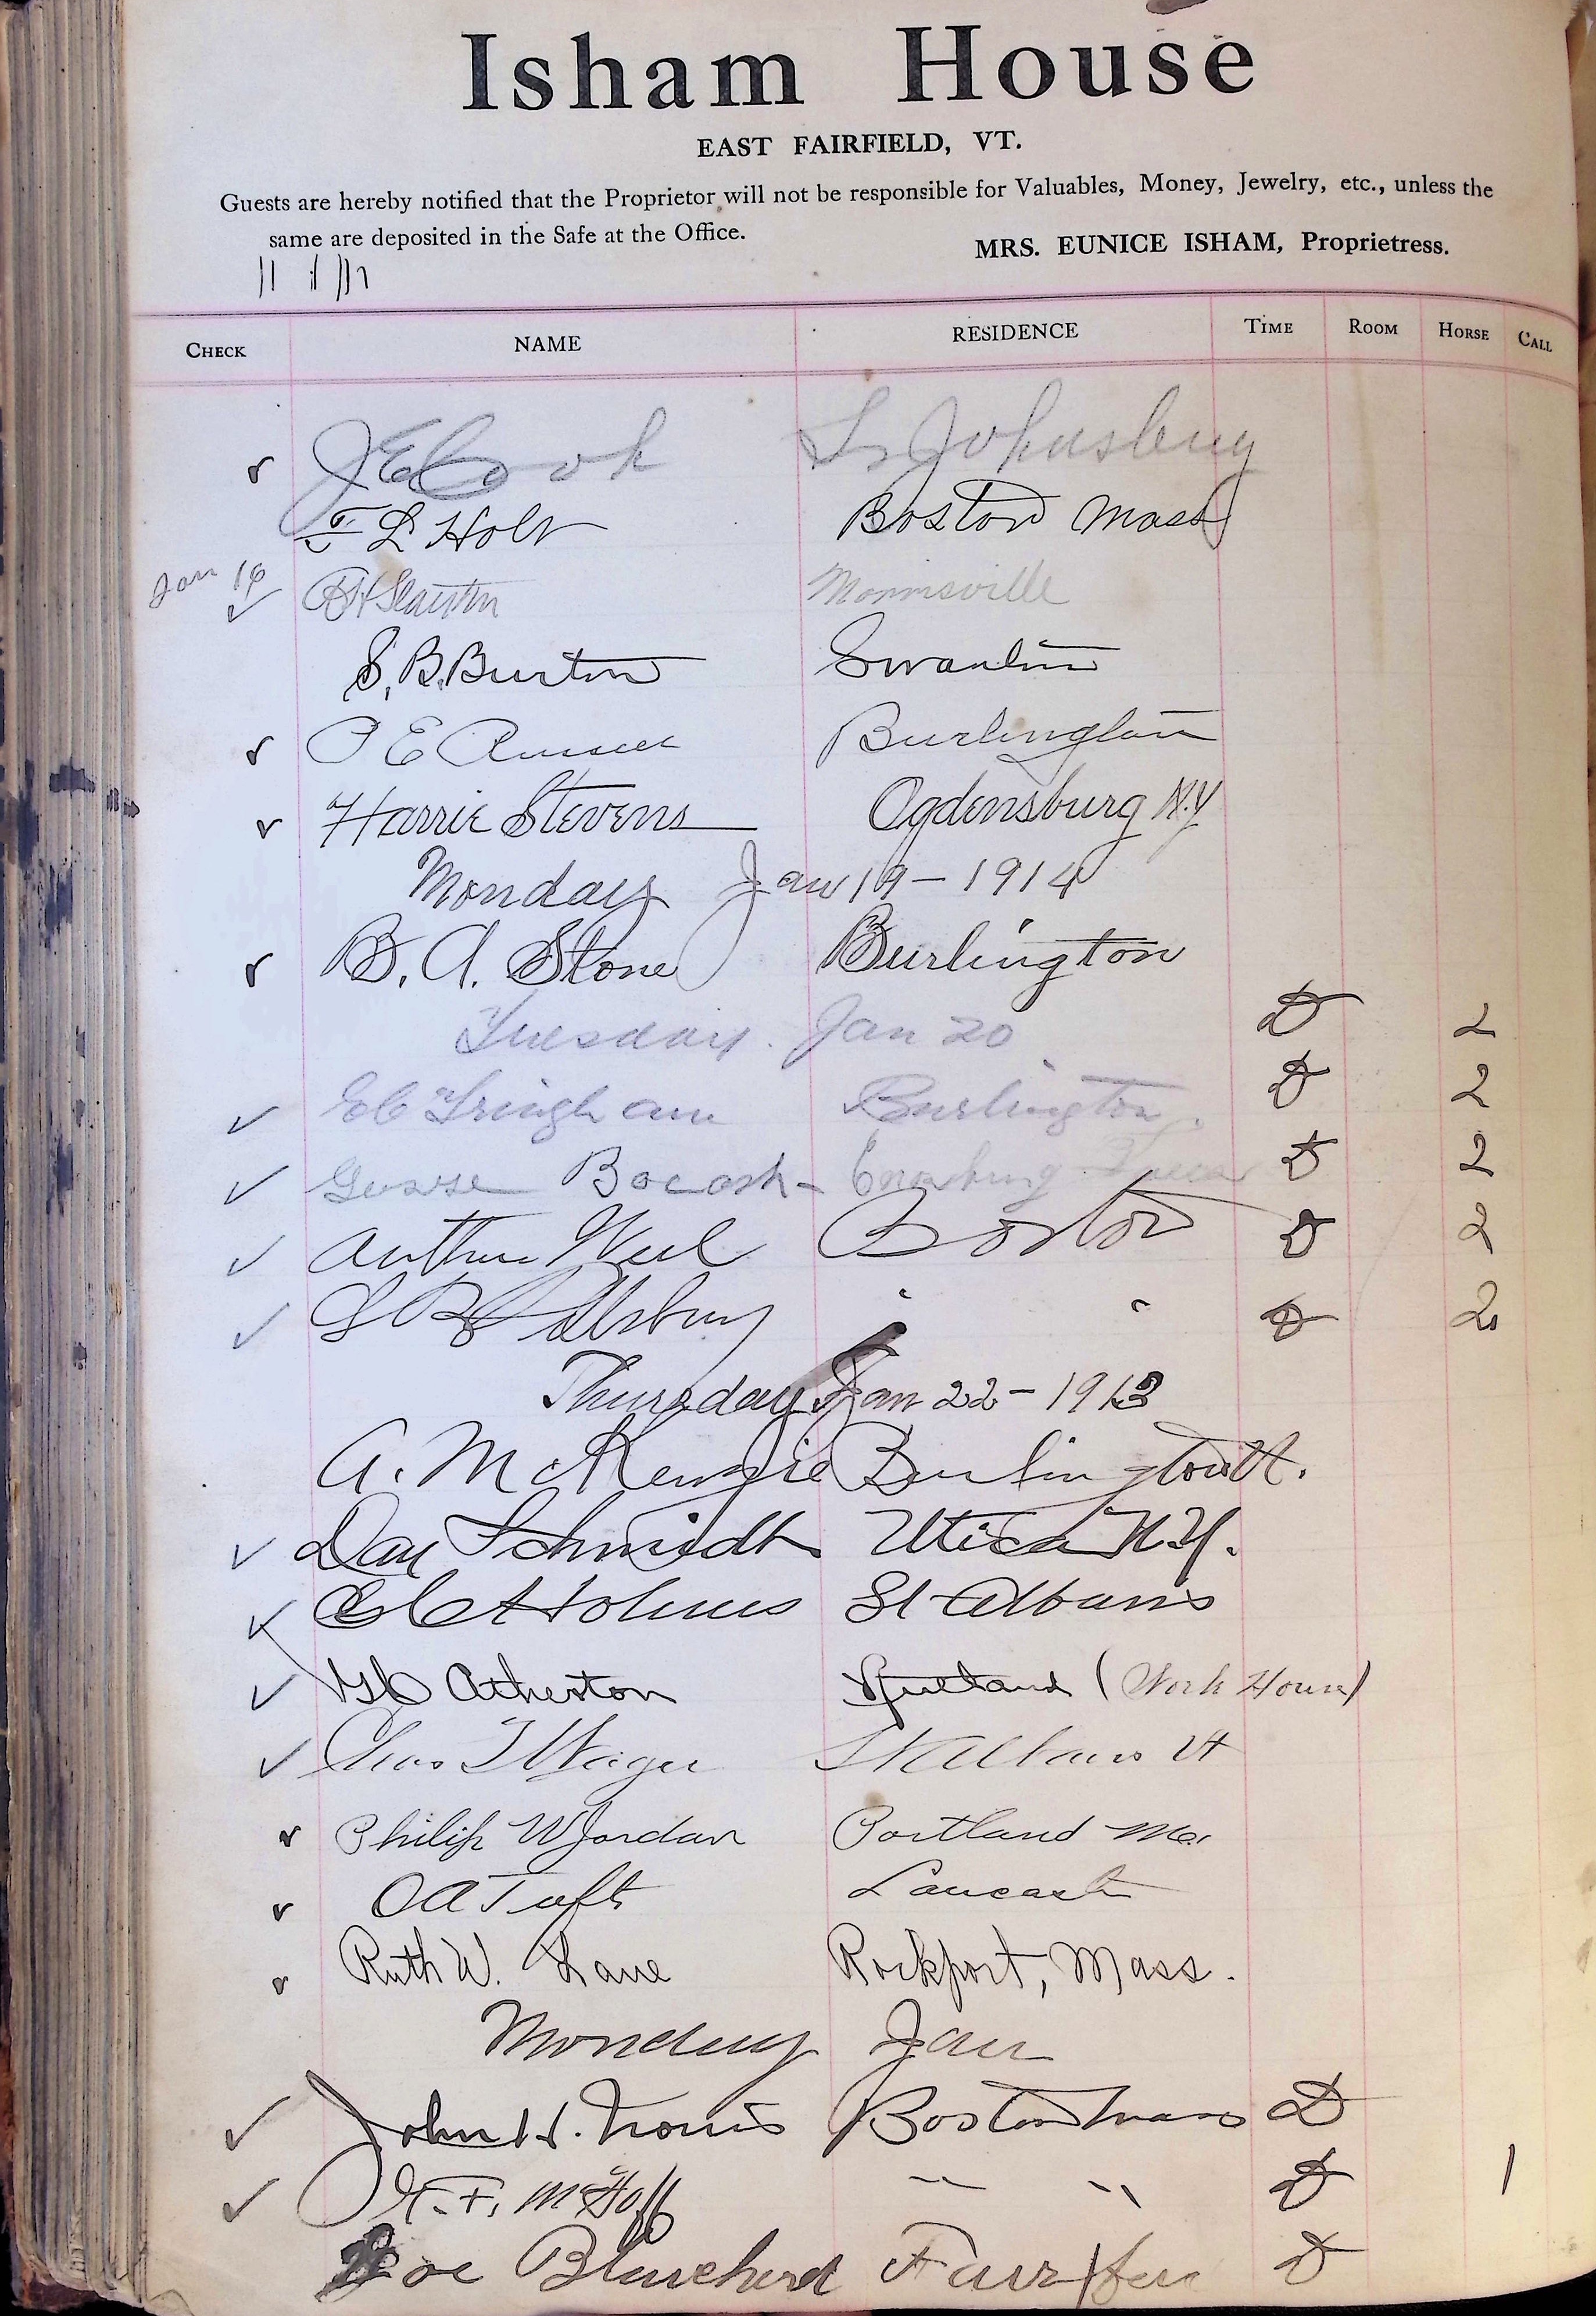 Isham House
EAST FAIRFIELD, VT.
Guests are hereby notified that the Proprietor will not be responsible for Valuables, Money, Jewelry, etc., unless the
same are deposited in the Safe at the Office.
MRS. EUNICE ISHAM, Proprietress.
CHECK NAME RESIDENCE TIME ROOM HORSE CALL
J E Cook St Johnsbury
F L Holt Boston Mass
Jan 16
Morrisville
S. B. Burton Swanton
E Russell Burlington
Harrie Stevens Ogdensburg N.Y
Monday Jan 19 - 1914
B. A. Stone Burlington
Tuesday. Jan 20 D 2
Burlington. D 2
Bocash - Enosburg Falls D 2
Arthur Weil Boston D 2
" " D 2
Thursday Jan 22 - 1913
A. McKenzie Burlington Vt.
Dan Schmidt Utica N.Y.
Holmes St Albans
Atherton Rutland (Work House)
Chas St Albans Vt
Philip W Jordan Portland Me.
O A Tuft Lancaster
Ruth W. Lane Rockport, Mass.
Monday Jan
John H. Norris Boston Mass D
F. McHoff " " D 1
Joe Blanchard Fairfield D